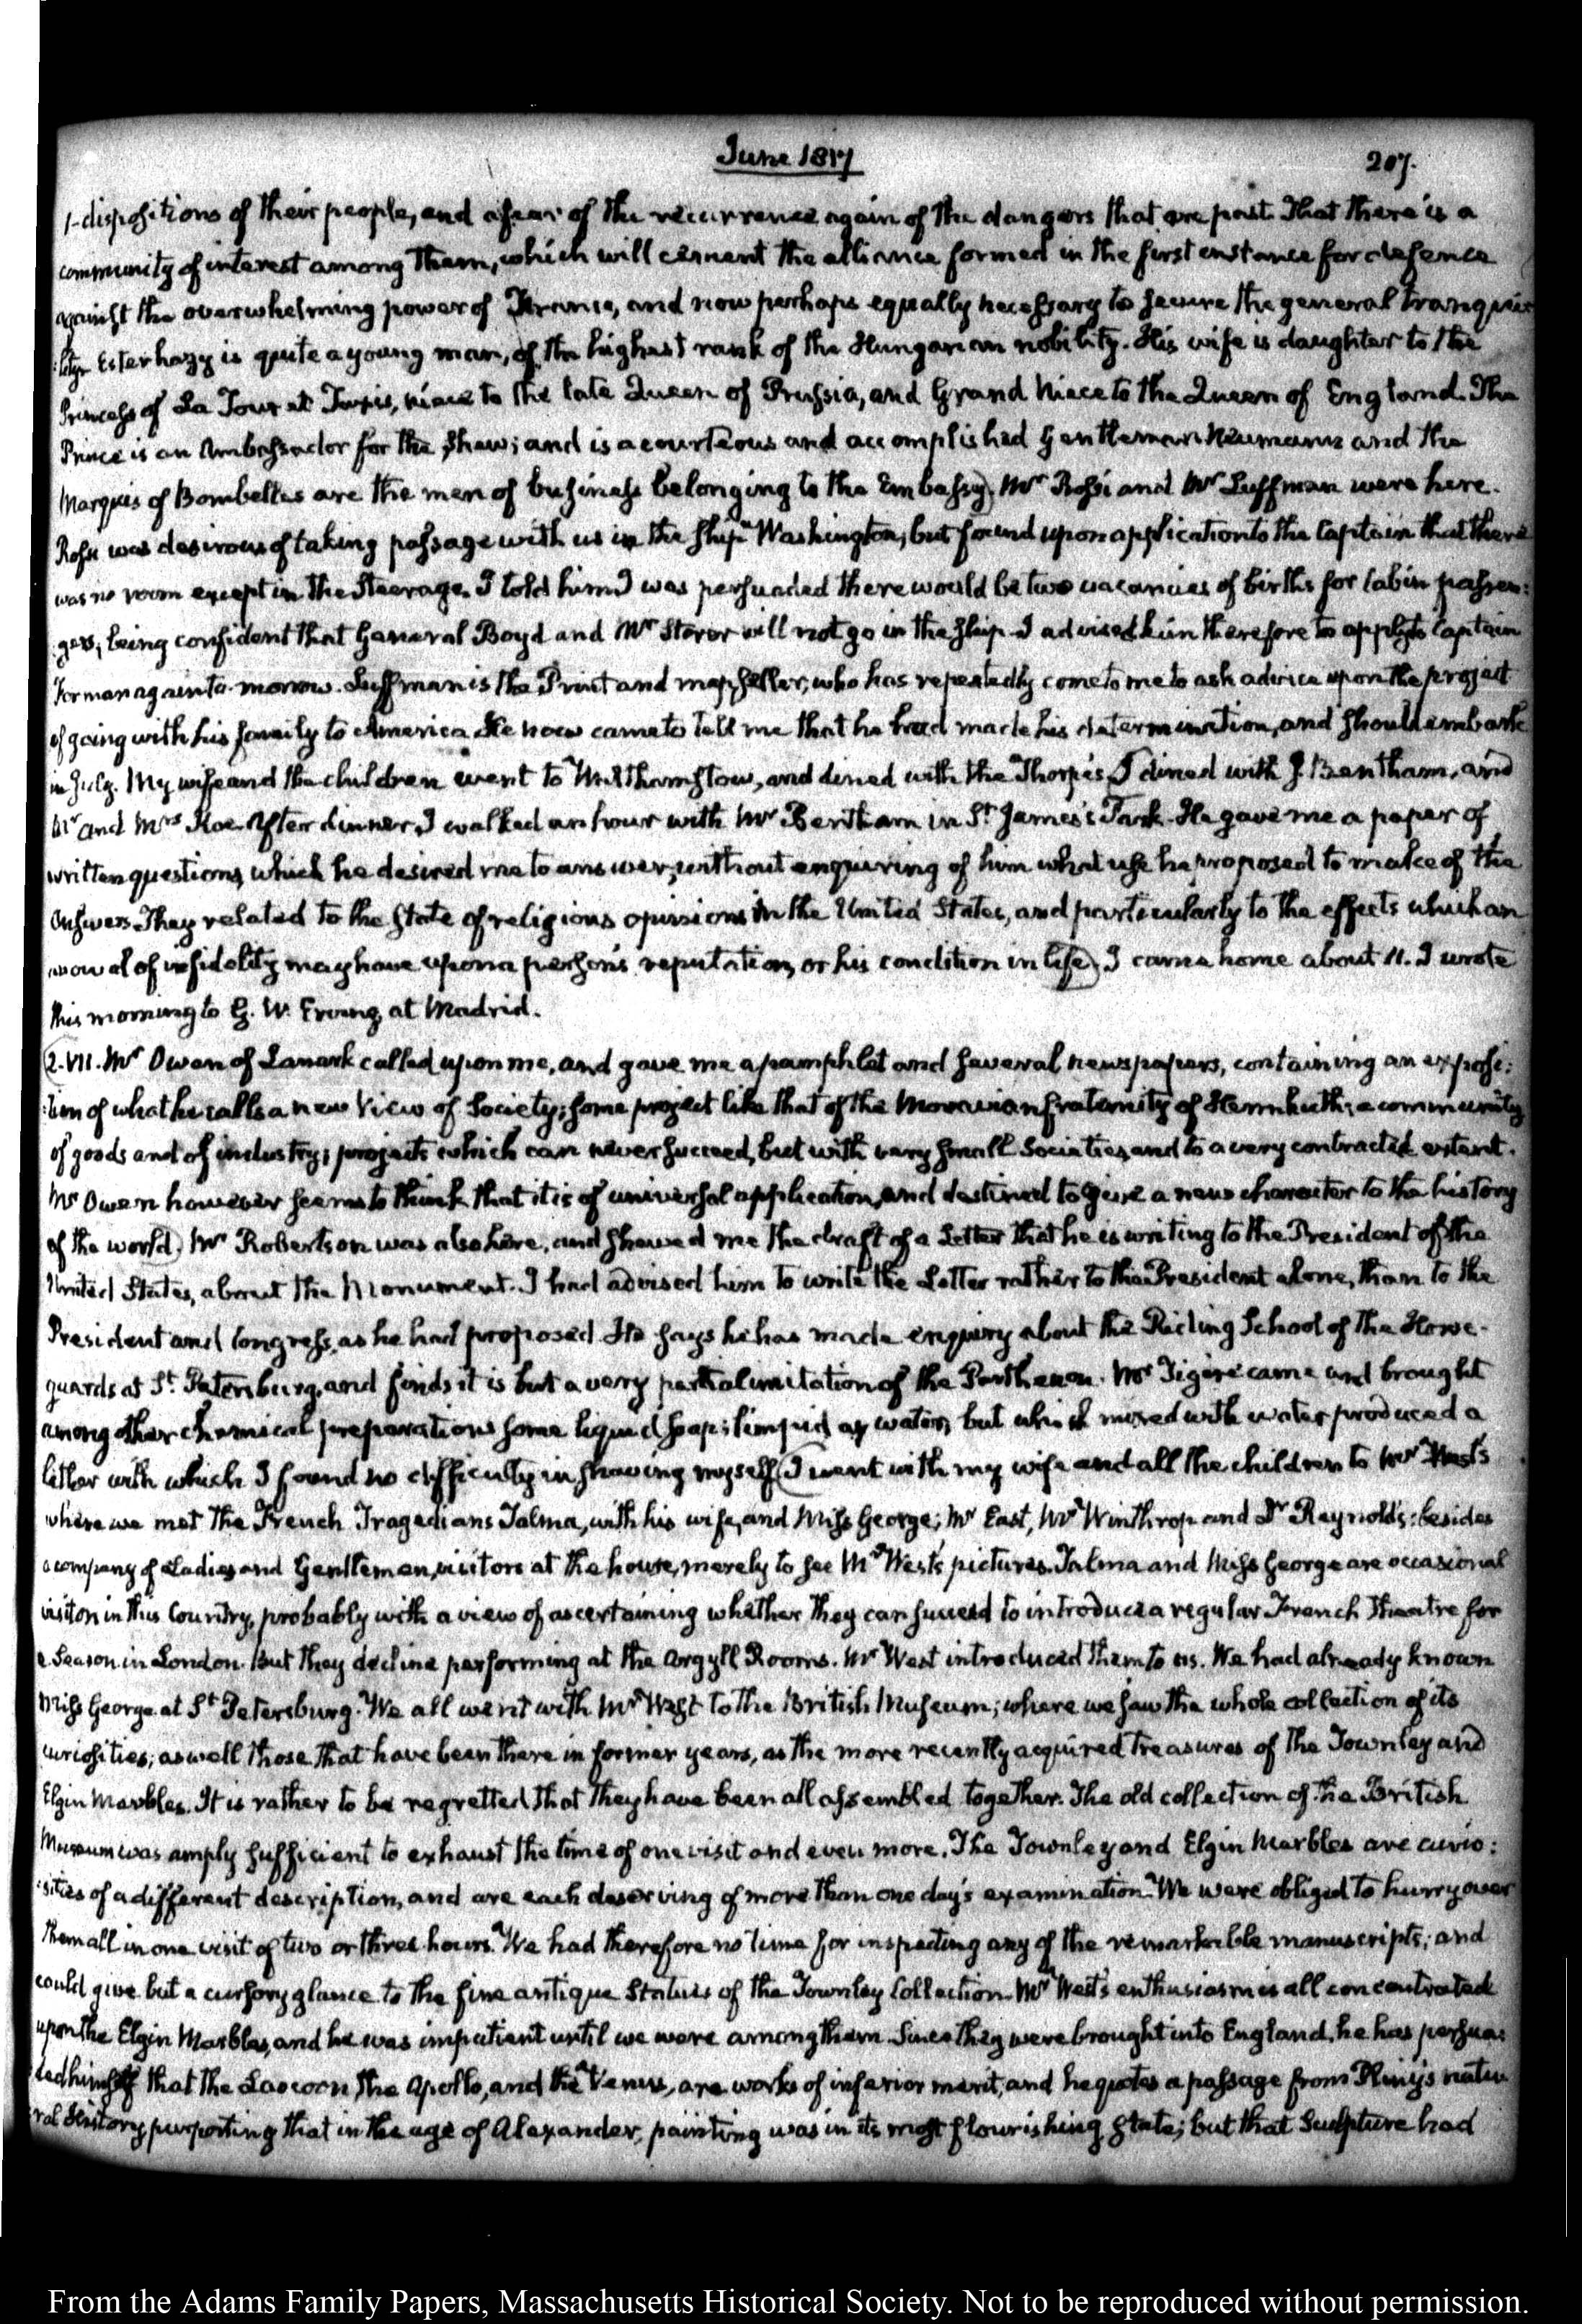 June 1817
207.
dispositions of their people, and a fear of the recurrence again of the dangers that are past. That there is a
community of interest among them, which will cement the alliance formed in the first instance for defence
against the overwhelming power of France, and now perhaps equally necessary to secure the general tranquil:
:lity. Esterhazy is quite a young man, of the highest rank of the Hungarian nobility. His wife is daughter to the
Princess of La Tour et Taxis, niece to the late Queen of Prussia, and Grand Niece to the Queen of England. The
Prince is an Ambassador for the shew; and is a courteous and accomplished Gentleman. Neumann and the
Marquis of Bombelles are the men of business belonging to the Embassy. Mr Rossi and Mr Luffman were here.
Rossi was desirous of taking passage with us in the ship Washington, but found upon application to the Captain that there
was no room except in the Steerage. I told him I was persuaded there would be two vacancies of births for Cabin passen:
:gers; being confident that General Boyd and Mr Storer will not go in the ship. I advised him therefore to apply to Captain
Forman again to-morrow. Luffman is the Print and map-seller, who has repeatedly come to me to ask advice upon the project
of going with his family to America. He now came to tell me that he had made his determination, and should embark
in July. My wife and the children went to Walthamstow, and dined with the Thorpe's. I dined with J. Bentham, and
Mr and Mrs Koe. After dinner, I walked an hour with Mr Bentham in St James's Park. He gave me a paper of
written questions, which he desired me to answer, without enquiring of him what use he proposed to make of the
answers. They related to the state of religious opinions in the United States, and particularly to the effects which an
avowal of infidelity may have upon a person's reputation, or his condition in life. I came home about 11. I wrote
this morning to G. W. Erving, at Madrid.
2. VII. Mr Owen of Lanark called upon me, and gave me a pamphlet and several newspapers, containing an exposi:
:tion of what he calls a new View of Society; some project like that of the Moravian fraternity of Hernhuth; a community
of goods and of industry; projects which can never succeed, but with very small Societies, and to a very contracted extent.
Mr Owen however seems to think that it is of universal application, and destined to give a new character to the history
of the world. Mr Robertson was also here, and shewed me the draft of a Letter that he is writing to the President of the
United States, about the Monument. I had advised him to write the Letter rather to the President alone, than to the
President and Congress, as he had proposed. He says he has made enquiry about the Riding School of the Horse-
guards at St. Petersburg, and finds it is but a very partial imitation of the Parthenon. Mr Tigere came and brought
among other chemical preparations some liquid soap; limpid as water, but which mixed with water produced a
lather with which I found no difficulty in shaving myself. I went with my wife and all the children to Mr West's
where we met the French Tragedians Talma, with his wife, and Miss George; Mr East, Mr Winthrop and Dr Reynolds: besides
a company of Ladies and Gentlemen, visitors at the house, merely to see Mr West's pictures. Talma and Miss George are occasional
visitors in this Country, probably with a view of ascertaining whether they can succeed to introduce a regular French Theatre for
a Season in London. But they decline performing at the Argyll Rooms. Mr West introduced them to us. We had already known
Miss George at St Petersburg. We all went with Mr West to the British Museum; where we saw the whole collection of its
curiosities; as well those that have been there in former years, as the more recently acquired treasures of the Townley and
Elgin Marbles. It is rather to be regretted that they have been all assembled together. The old collection of the British
Museum was amply sufficient to exhaust the time of one visit and even more. The Townley and Elgin Marbles are curio:
:sities of a different description, and are each deserving of more than one day's examination. We were obliged to hurry over
them all in one visit of two or three hours. We had therefore no time for inspecting any of the remarkable manuscripts; and
could give but a cursory glance to the fine antique Statues of the Townley Collection. Mr West's enthusiasm is all concentrated
upon the Elgin Marbles, and he was impatient until we were among them. Since they were brought into England, he has persua:
:ded himself that the Laocoon, the Apollo, and the Venus, are works of inferior merit; and he quotes a passage from Pliny's natu
ral History purporting that in the age of Alexander, painting was in its most flourishing state; but that Sculpture had
From the Adams Family Papers, Massachusetts Historical Society. Not to be reproduced without permission.